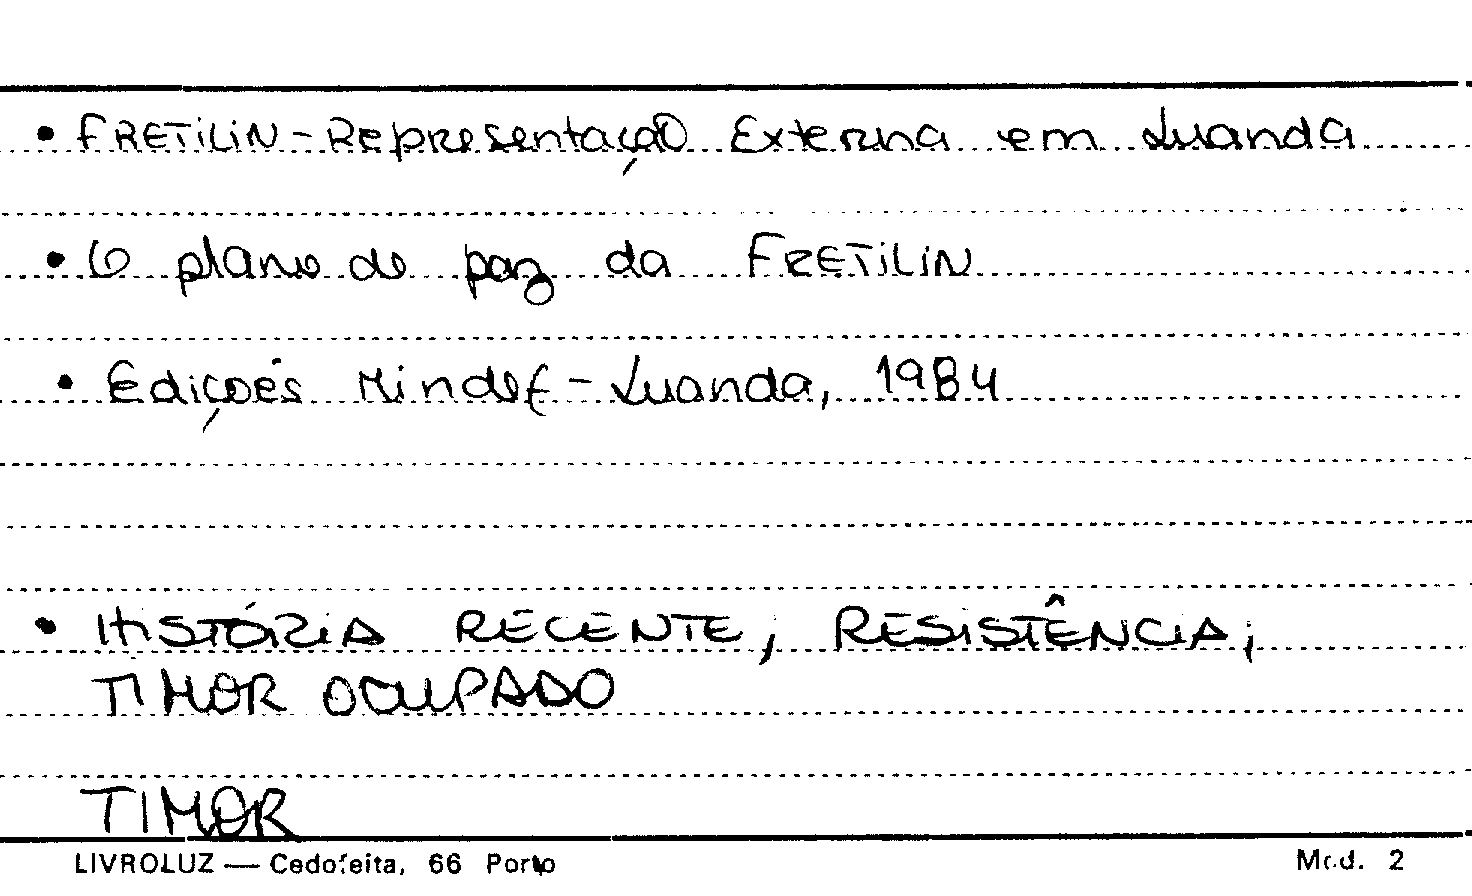 • FRETiLiN - Representação Externa em Luanda
• O plano de paz da FRETiLiN
• Edições Mindef - Luanda, 1984
• HiSTÓRiA RECENTE, RESiSTÊNCiA,
TIMOR OCUPADO
TIMOR
LIVROLUZ — Cedofeita, 66 Porto Mod. 2